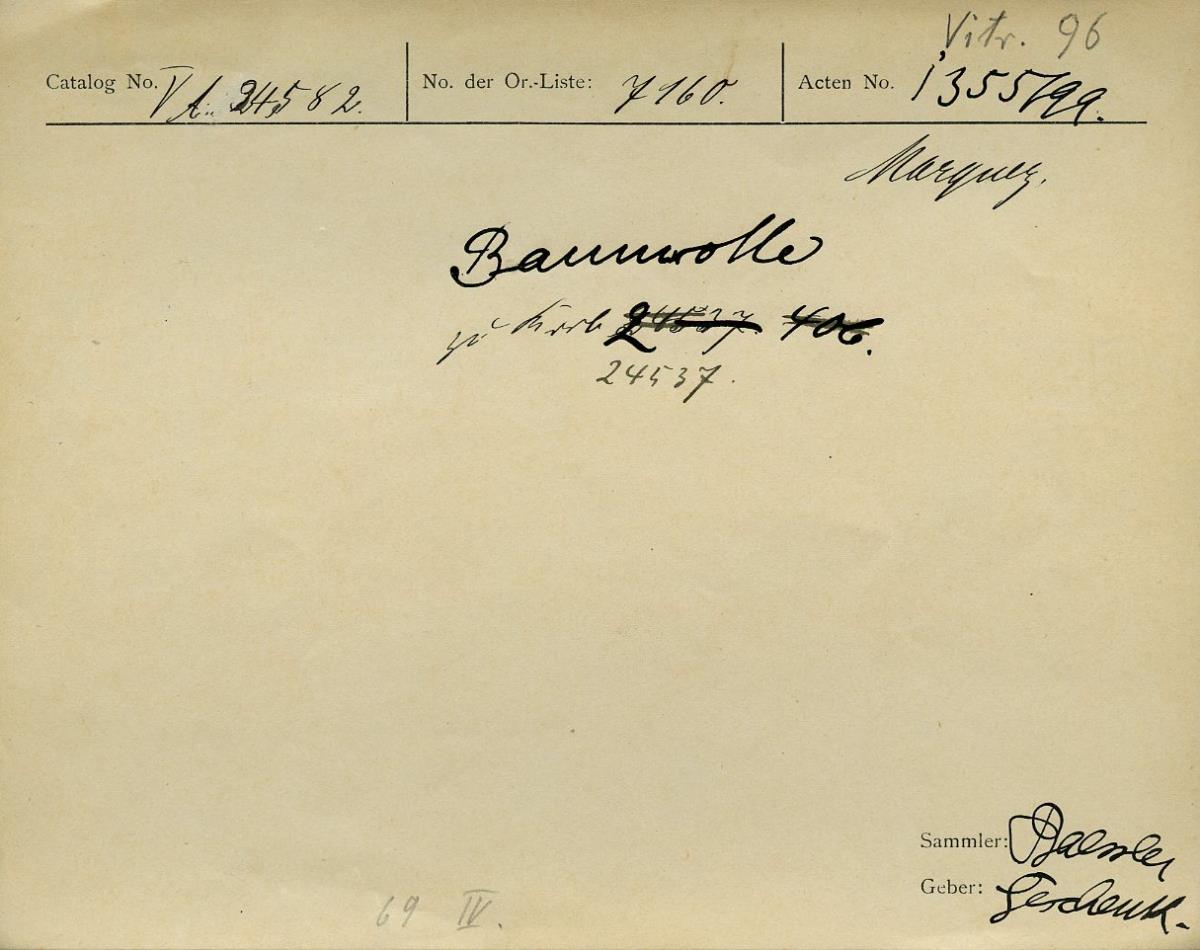 Vitr. 96
Catalog No. V A. 24582. No. der Or.-Liste: 7160. Acten No. 1355/99.
Marquez.
Baumwolle
zu Korb 24537. 406.
24537.
Sammler: Baessler
Geber: Geschenk.
69 IV.